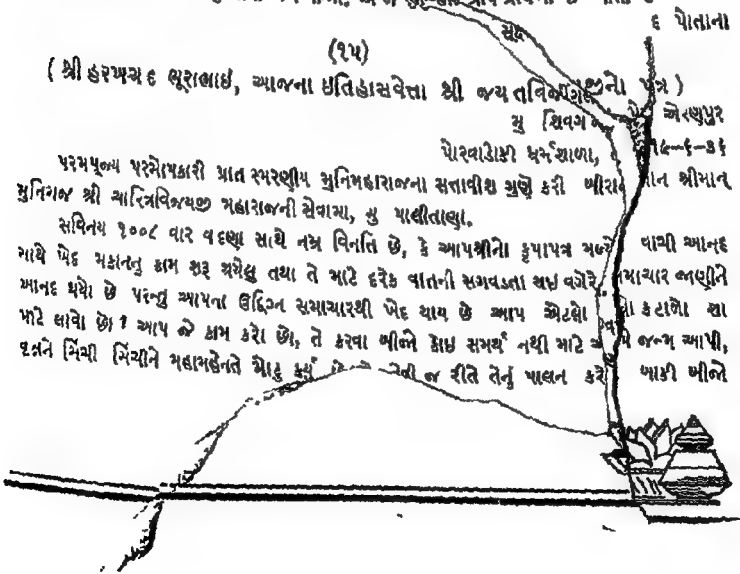 ૬ પોતાના
(૧૫)
(શ્રી હરખચદ ભૂરાભાઈ, આજના ઇતિહાસવેત્તા શ્રી જય તવિજયજીનો પત્ર)
મુ શિવગ એરણપુર
પોરવાડોકી ધર્મશાળા, ૧૯-૬-૩૬
પરમપૂજ્ય પરમોપકારી પ્રાત સ્મરણીય મુનિમહારાજના સત્તાવીશ ગુણે કરી માન શ્રીમાન્
મુનિરાજ શ્રી ચારિત્રવિજયજી મહારાજની સેવામા, મુ પાલીતાણા.
સવિનય ૧૦૦૮ વાર વદણા સાથે નમ્ર વિનતિ છે, કે આપશ્રીનો કૃપાપત્ર મળ્યો વાચી આનદ
સાથે ખેદ મકાનનુ કામ શરૂ થયેલુ તથા તે માટે દરેક વાતની સગવડતા થઇ વગેરે સમાચાર જાણીને
આનદ થયો છે પરન્તુ આપના ઉદ્વિગ્ન સમાચારથી ખેદ થાય છે આપ એટલો કટાળો શા
માટે લાવો છો? આપ જે કામ કરો છો, તે કરવા બીજો કોઇ સમર્થ નથી માટે જન્મ આપી,
વૃક્ષને સિંચી સિંચીને મહામહેનતે મોટુ કર્યું જ રીતે તેનું પાલન કરો બાકી બીજો